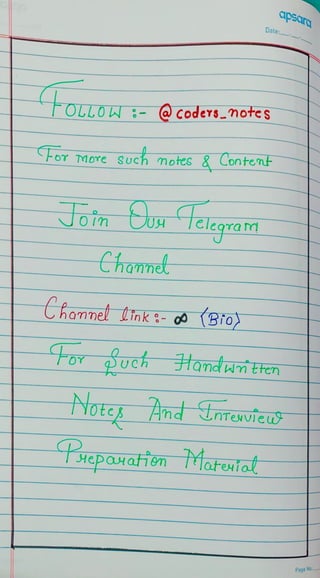 apsara
Date:
FOLLOW :- @coders_notes
For more such notes & Content
Join Our Telegram
Channel
Channel link :- ∞ (Bio)
For Such Handwritten
Notes And Interview
Preparation Material
Page No.